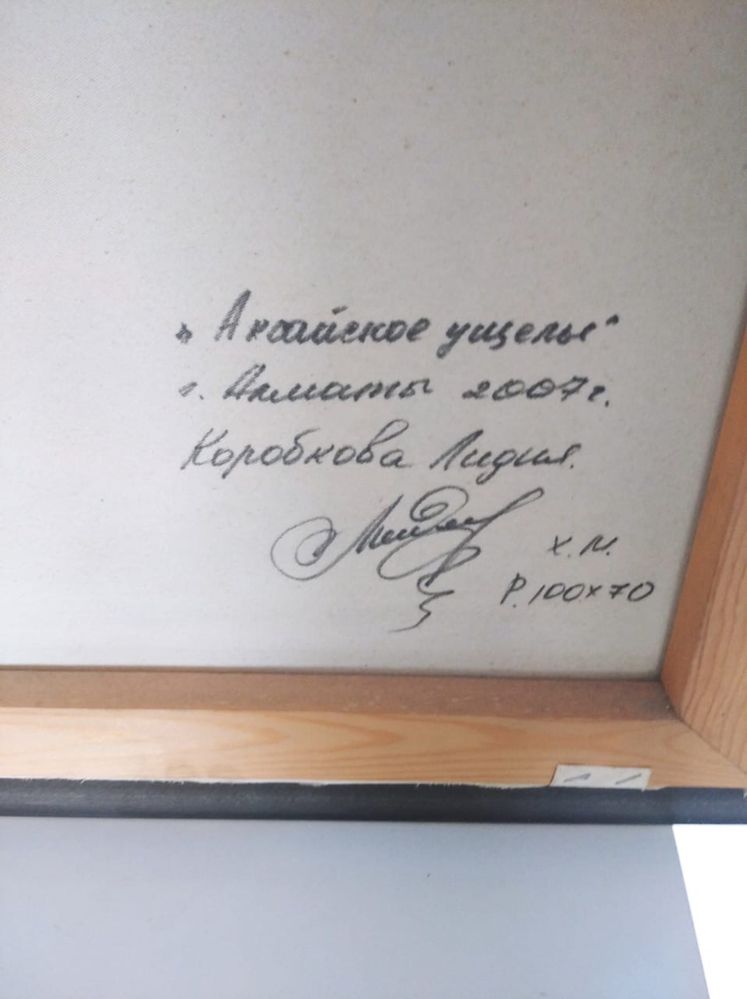 „Аксайское ущелье"
г. Алматы 2007г.
Коробкова Лидия.
х.м.
Р. 100х70